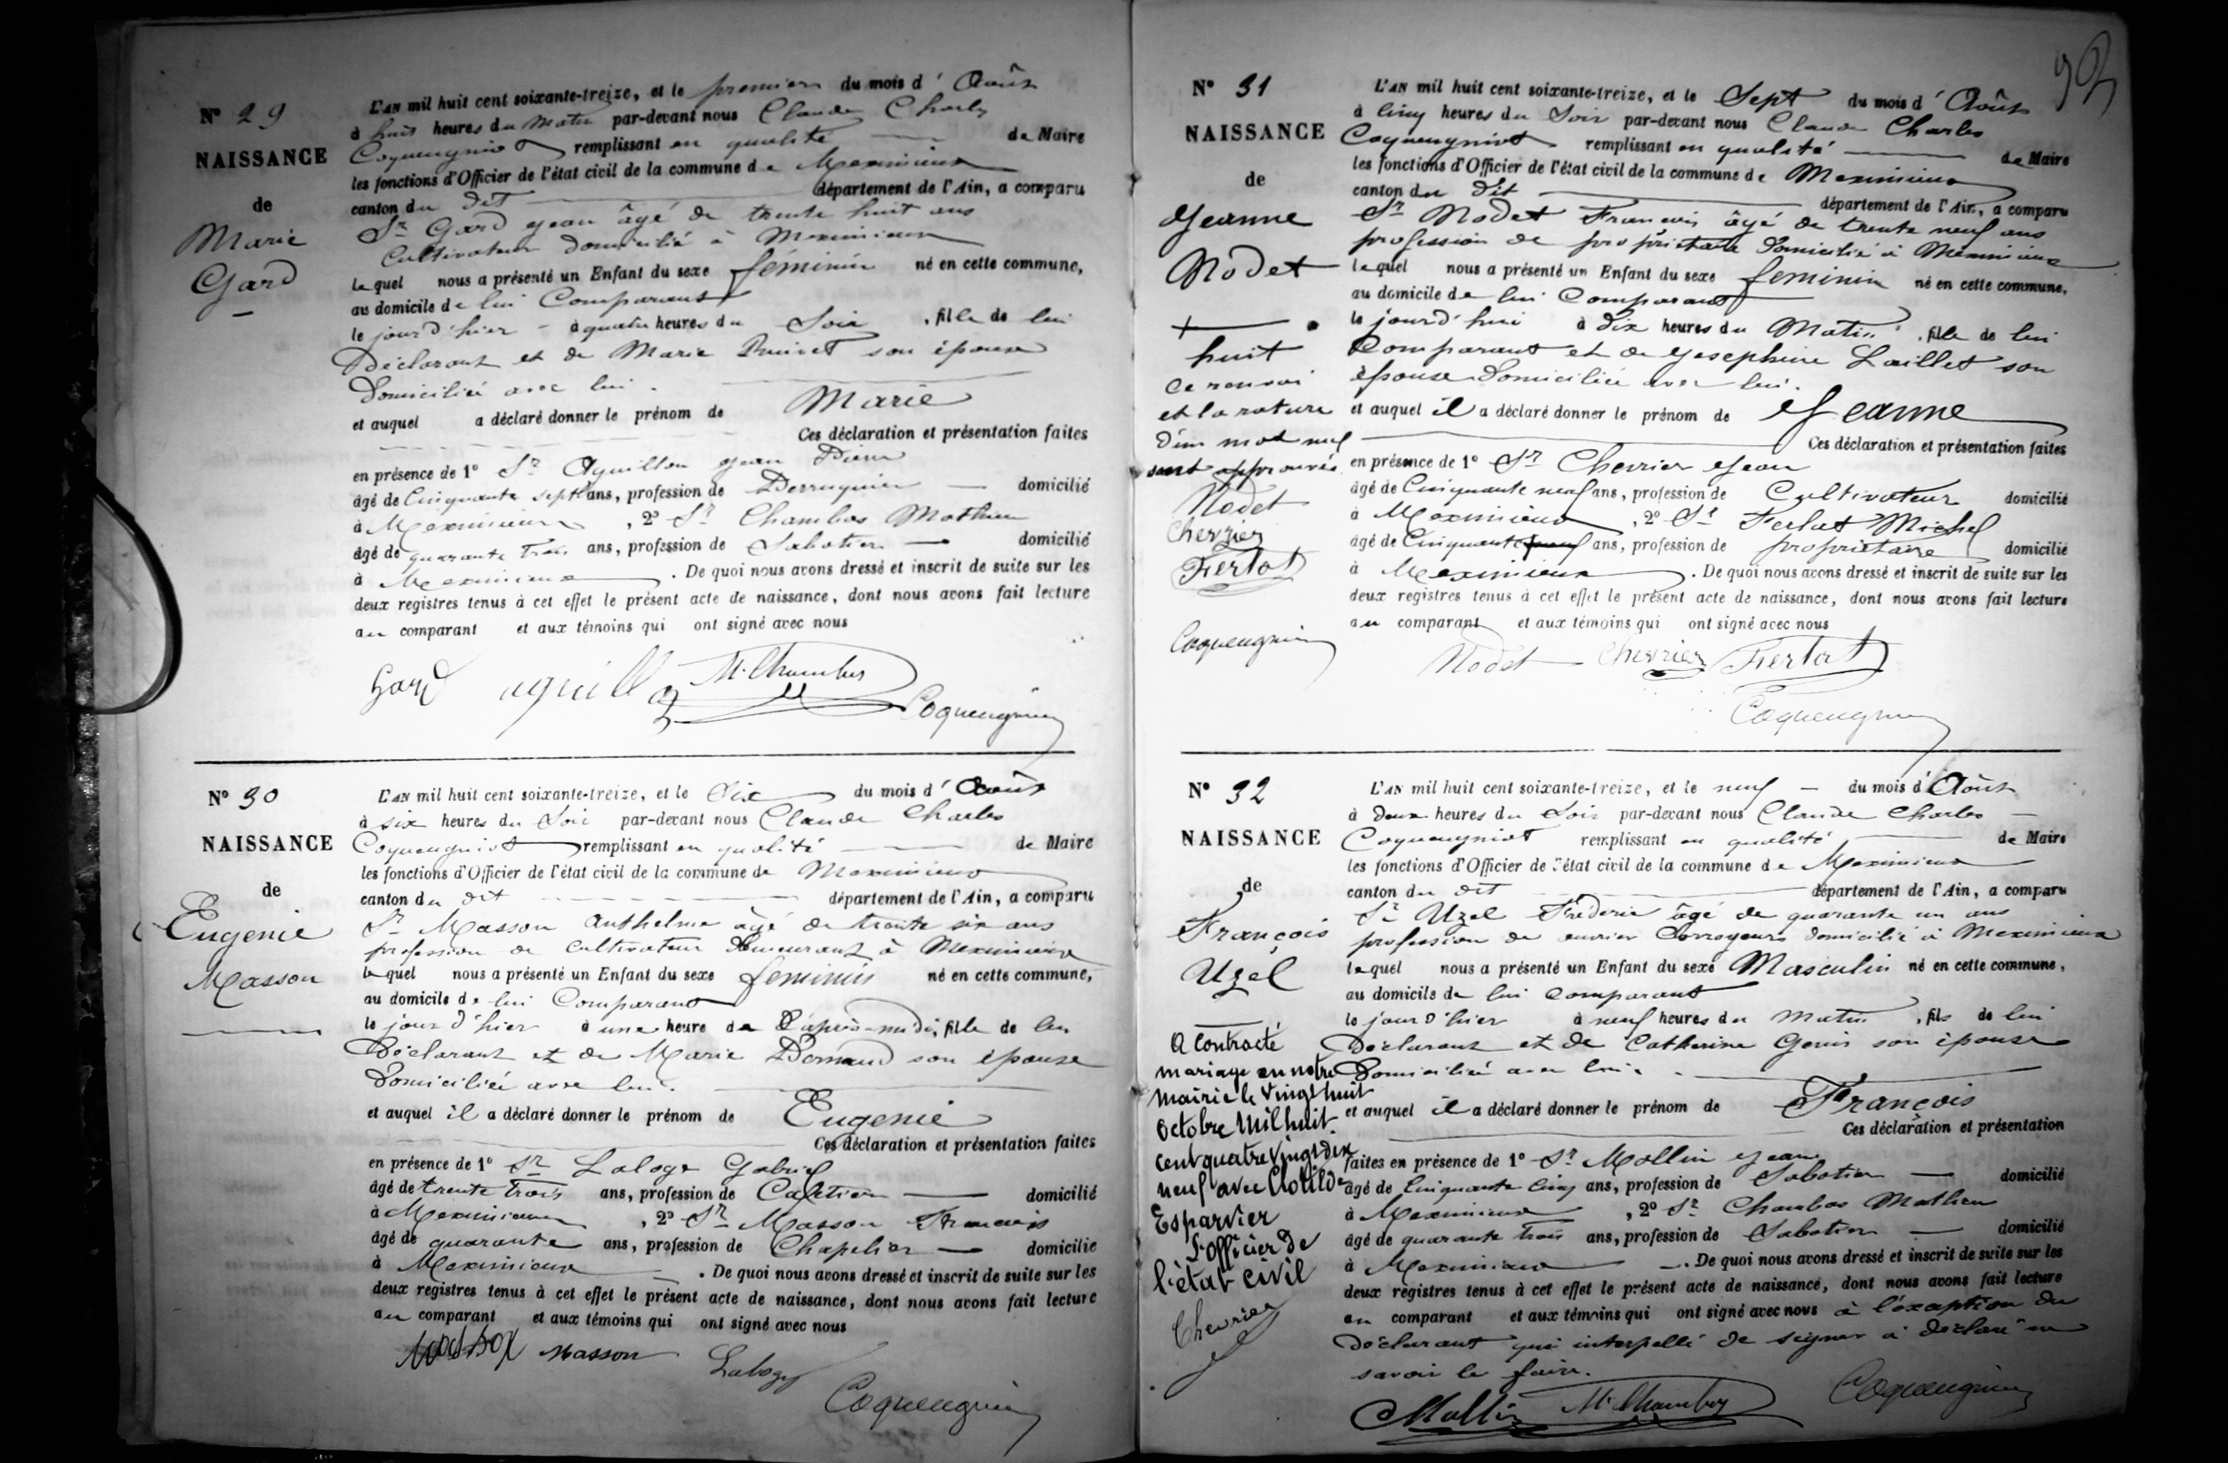 Nº 29
NAISSANCE
de
Marie
Gard
L'AN mil huit cent soixante-treize, et le premier du mois d'Août
à huit heures du Matin par-devant nous Claude Charles
Coqueugniot remplissant en qualité de Maire
les fonctions d'Officier de l'état civil de la commune de Meximieux
canton du dit département de l'Ain, a comparu
Sr Gard Jean âgé de trente huit ans
Cultivateur domicilié à Meximieux
lequel nous a présenté un Enfant du sexe féminin né en cette commune,
au domicile de lui Comparant
le jour d'hier à quatre heures du Soir, fille de lui
Déclarant et de Marie son épouse
Domiciliée avec lui.
et auquel a déclaré donner le prénom de Marie
Ces déclaration et présentation faites
en présence de 1º Sr Aguillon Jean Pierre
âgé de Cinquante sept ans, profession de domicilié
à Meximieux, 2º Sr Chambos Mathieu
âgé de quarante trois ans, profession de Sabotier domicilié
à Meximieux. De quoi nous avons dressé et inscrit de suite sur les
deux registres tenus à cet effet le présent acte de naissance, dont nous avons fait lecture
au comparant et aux témoins qui ont signé avec nous
Gard M. Chambos
Coqueugniot
Nº 30
NAISSANCE
de
Eugenie
Masson
L'AN mil huit cent soixante-treize, et le Six du mois d'Août
à six heures du Soir par-devant nous Claude Charles
Coqueugniot remplissant en qualité de Maire
les fonctions d'Officier de l'état civil de la commune de Meximieux
canton du dit département de l'Ain, a comparu
Sr Masson Anthelme âgé de trente six ans
profession de Cultivateur demeurant à Meximieux
lequel nous a présenté un Enfant du sexe feminin né en cette commune,
au domicile de lui Comparant
le jour d'hier à une heure de l'après-midi, fille de lui
Déclarant et de Marie son épouse
Domiciliée avec lui.
et auquel il a déclaré donner le prénom de Eugenie
Ces déclaration et présentation faites
en présence de 1º Sr Laloge Gabriel
âgé de trente trois ans, profession de Cafetier domicilié
à Meximieux, 2º Sr Masson Francois
âgé de quarante ans, profession de Chapelier domicilié
à Meximieux. De quoi nous avons dressé et inscrit de suite sur les
deux registres tenus à cet effet le présent acte de naissance, dont nous avons fait lecture
au comparant et aux témoins qui ont signé avec nous
Masson Laloge
Coqueugniot
Nº 31
NAISSANCE
de
Jeanne
Nodet
huit
ce renvoi
et la rature
d'un mot neuf
sont approuvés.
Nodet
Chevrier
Fertat
Coqueugniot
L'AN mil huit cent soixante-treize, et le Sept du mois d'Août
à Cinq heures du Soir par-devant nous Claude Charles
Coqueugniot remplissant en qualité de Maire
les fonctions d'Officier de l'état civil de la commune de Meximieux
canton du dit département de l'Ain, a comparu
Sr Nodet Francois âgé de trente neuf ans
profession de propriétaire domicilié à Meximieux
lequel nous a présenté un Enfant du sexe feminin né en cette commune,
au domicile de lui Comparant
le jourd'hui à dix heures du Matin, fille de lui
Comparant et de Josephine Laillet son
épouse Domiciliée avec lui.
et auquel il a déclaré donner le prénom de Jeanne
Ces déclaration et présentation faites
en présence de 1º Sr Chevrier Jean
âgé de Cinquante neuf ans, profession de Cultivateur domicilié
à Meximieux, 2º Sr Fertat Michel
âgé de Cinquante neuf ans, profession de propriétaire domicilié
à Meximieux. De quoi nous avons dressé et inscrit de suite sur les
deux registres tenus à cet effet le présent acte de naissance, dont nous avons fait lecture
au comparant et aux témoins qui ont signé avec nous
Nodet Chevrier Fertat
Coqueugniot
Nº 32
NAISSANCE
de
François
Uzel
A contracté
mariage en notre
mairie le vingt huit
octobre mil huit
cent quatre vingt dix
neuf avec Clotilde
Esparvier
L'officier de
l'état civil
Chevrier
L'AN mil huit cent soixante-treize, et le neuf du mois d'Août
à Deux heures du Soir par-devant nous Claude Charles
Coqueugniot remplissant en qualité de Maire
les fonctions d'Officier de l'état civil de la commune de Meximieux
canton du dit département de l'Ain, a comparu
Sr Uzel Fréderic âgé de quarante un ans
profession de ouvrier Corroyeur domicilié à Meximieux
lequel nous a présenté un Enfant du sexe Masculin né en cette commune,
au domicile de lui comparant
le jour d'hier à neuf heures du matin, fils de lui
Déclarant et de Catherine son épouse
Domiciliée avec lui.
et auquel il a déclaré donner le prénom de François
Ces déclaration et présentation
faites en présence de 1º Sr Mollin Jean
âgé de Cinquante Cinq ans, profession de Sabotier domicilié
à Meximieux, 2º Sr Chambos Mathieu
âgé de quarante trois ans, profession de Sabotier domicilié
à Meximieux. De quoi nous avons dressé et inscrit de suite sur les
deux registres tenus à cet effet le présent acte de naissance, dont nous avons fait lecture
au comparant et aux témoins qui ont signé avec nous à l'exception du
Déclarant qui interpellé de signer a déclaré ne
savoir le faire.
Mollin M. Chambos Coqueugniot